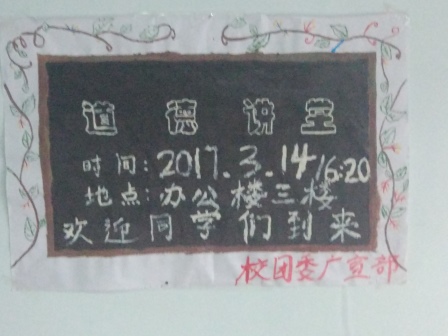 道德讲堂
时间:2017.3.14 16:20
地点:办公楼三楼
欢迎同学们到来
校团委广宣部